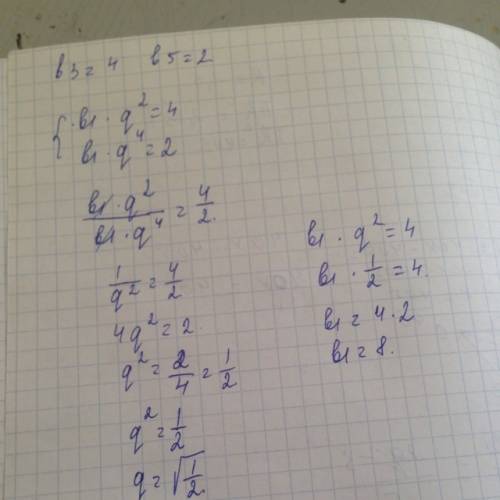 в3 = 4 в5 = 2
{ в1 · q² = 4
в1 · q⁴ = 2
в1 · q² / в1 · q⁴ = 4/2.
1/q² = 4/2
4q² = 2.
q² = 2/4 = 1/2
q² = 1/2
q = √1/2.
в1 · q² = 4
в1 · 1/2 = 4.
в1 = 4 · 2
в1 = 8.